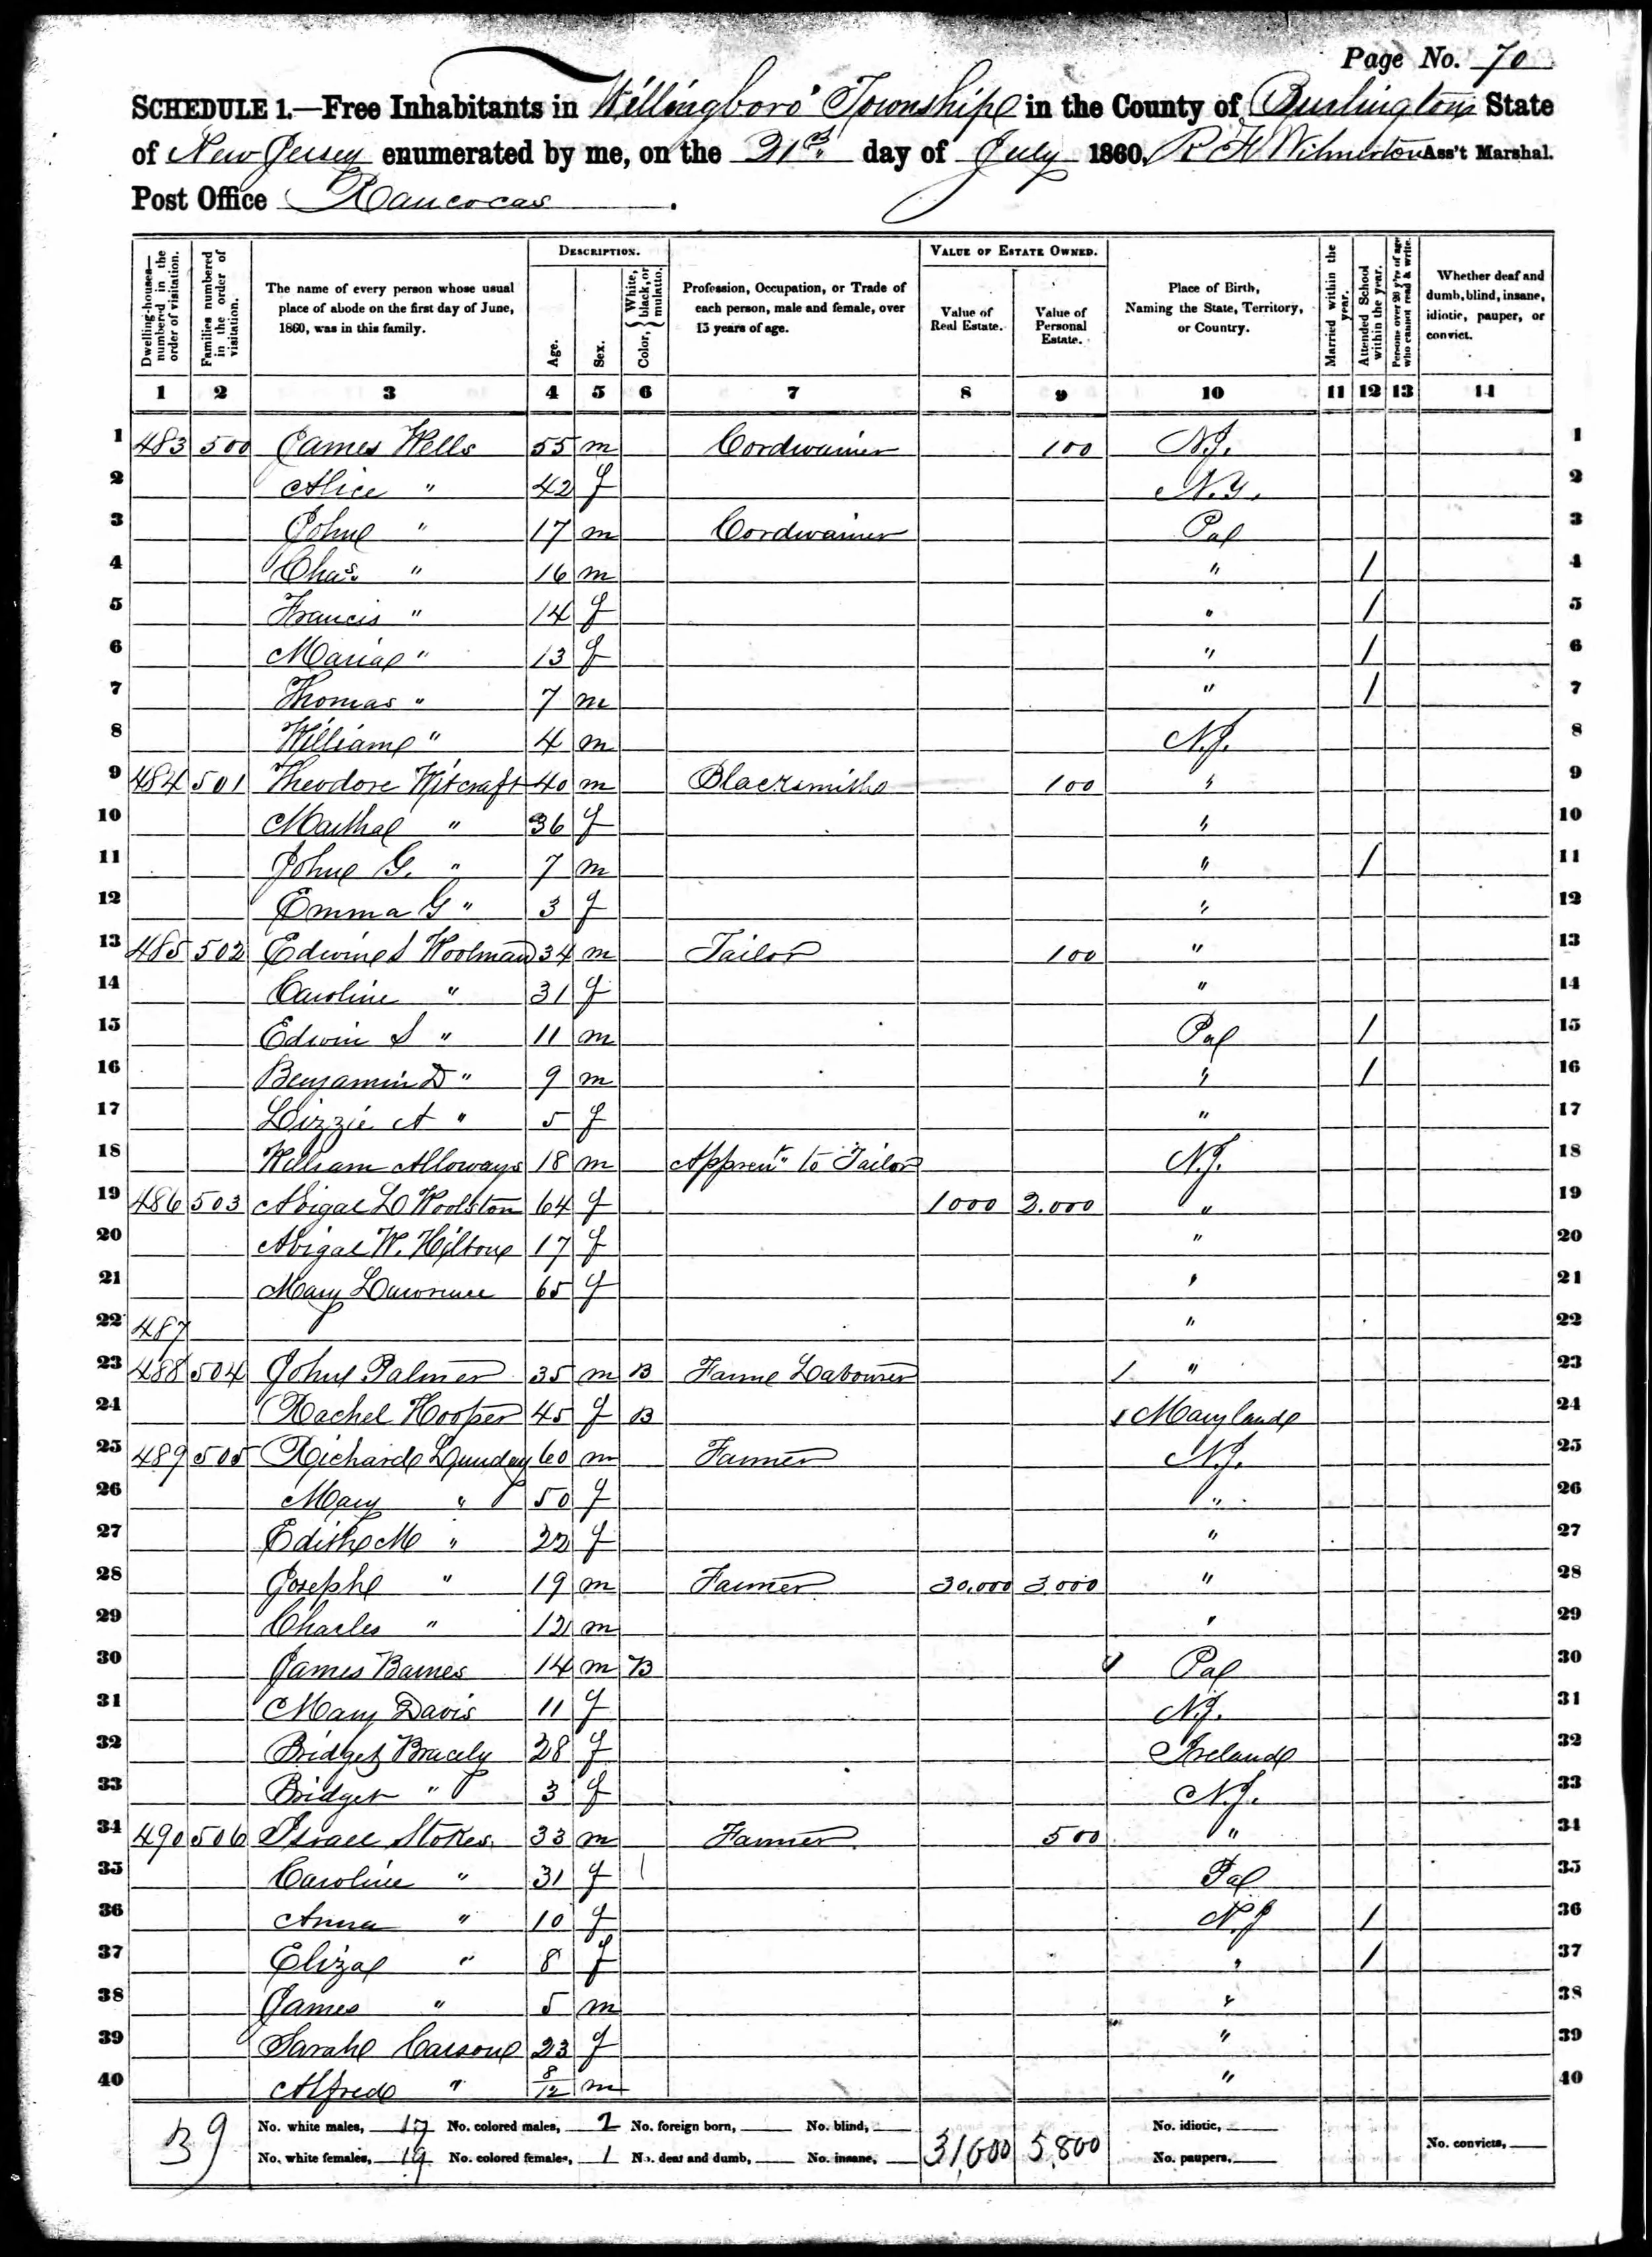 Page No. 70
SCHEDULE 1.—Free Inhabitants in Willingboro' Township in the County of Burlington State
of New Jersey enumerated by me, on the 31st day of July 1860. R H Wilmerton Ass't Marshal.
Post Office Rancocas.
DESCRIPTION. VALUE OF ESTATE OWNED.
Dwelling-houses—numbered in the order of visitation.
Families numbered in the order of visitation.
The name of every person whose usual place of abode on the first day of June, 1860, was in this family.
Age.
Sex.
Color, { White, black, or mulatto.
Profession, Occupation, or Trade of each person, male and female, over 15 years of age.
Value of Real Estate.
Value of Personal Estate.
Place of Birth, Naming the State, Territory, or Country.
Married within the year.
Attended School within the year.
Persons over 20 y'rs of age who cannot read & write.
Whether deaf and dumb, blind, insane, idiotic, pauper, or convict.
1 2 3 4 5 6 7 8 9 10 11 12 13 14
1 483 500 James Wells 55 m Cordwainer 100 N.J. 1
2 Alice " 42 f N.Y. 2
3 John " 17 m Cordwainer Pa 3
4 Chas. " 16 m " / 4
5 Francis " 14 f " / 5
6 Maria " 13 f " / 6
7 Thomas " 7 m " / 7
8 William " 4 m N.J. 8
9 484 501 Theodore Witcraft 40 m Blacksmith 100 " 9
10 Martha " 36 f " 10
11 John G. " 7 m " / 11
12 Emma G " 3 f " 12
13 485 502 Edwin S Woolman 34 m Tailor 100 " 13
14 Caroline " 31 f " 14
15 Edwin S " 11 m Pa / 15
16 Benjamin D " 9 m " / 16
17 Lizzie A " 5 f " 17
18 William Alloways 18 m Appren't to Tailor N.J. 18
19 486 503 Abigal L Woolston 64 f 1000 2.000 " 19
20 Abigal W. Hilton 17 f " 20
21 Mary Lawrence 65 f " 21
22 487 " 22
23 488 504 John Palmer 35 m B Farm Labourer / " 23
24 Rachel Hooper 45 f B / Maryland 24
25 489 505 Richard Lundey 60 m Farmer N.J. 25
26 Mary " 50 f " 26
27 Edith M " 22 f " 27
28 Joseph " 19 m Farmer 30.000 3.000 " 28
29 Charles " 12 m " 29
30 James Barnes 14 m B Pa 30
31 Mary Davis 11 f N.J. 31
32 Bridget Bracely 28 f Ireland 32
33 Bridget " 3 f N.J. 33
34 490 506 Israel Stokes 33 m Farmer 500 " 34
35 Caroline " 31 f Pa 35
36 Anna " 10 f N.J / 36
37 Eliza " 8 f " / 37
38 James " 5 m " 38
39 Sarah Carson 23 f " 39
40 Alfred " 8/12 m " 40
39
No. white males, 17 No. colored males, 2 No. foreign born, No. blind, 31,000 5,800 No. idiotic,
No. white females, 19 No. colored females, 1 No. deaf and dumb, No. insane, No. paupers, No. convicts,